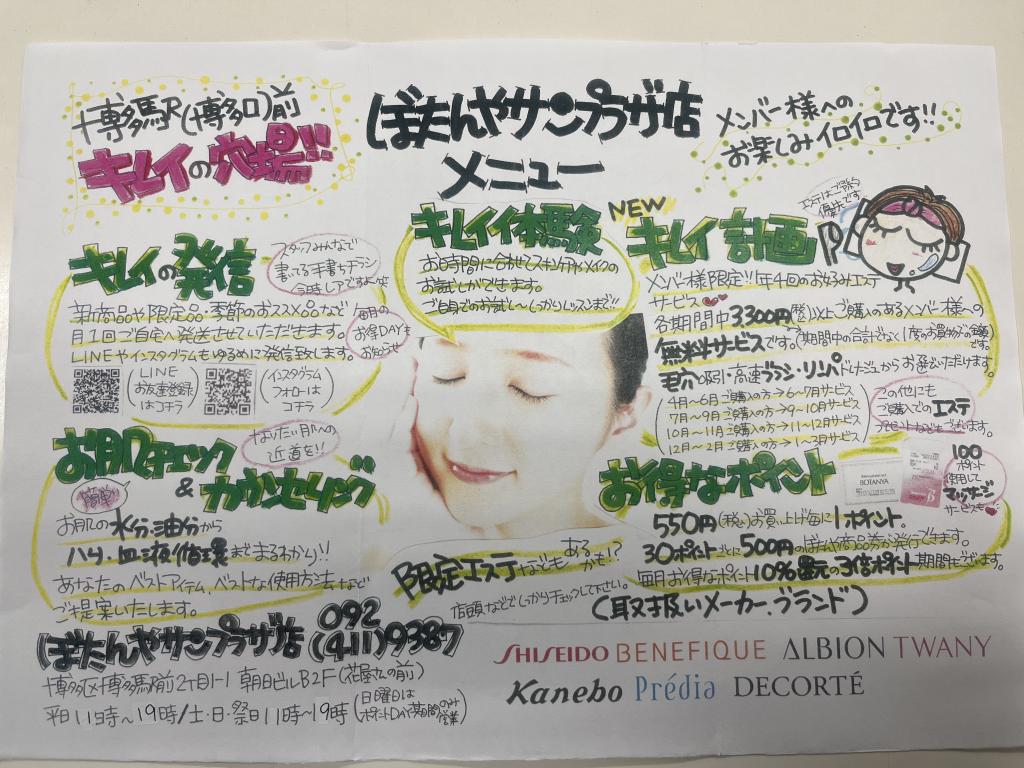 博多駅(博多口)前
キレイの穴場!!
ぼたんやサンプラザ店
メニュー
メンバー様への
お楽しみイロイロです!!
キレイの発信
スタッフみんなで
書いてる手書きチラシ
今時レアですよ〜笑
新商品や限定品・季節のおススメ品など
月1回ご自宅へ発送させていただきます。
LINEやインスタグラムもゆるめに発信致します。
毎月の
お得DAYも
お知らせ
(LINE
お友達登録
はコチラ)
(インスタグラム
フォローは
コチラ)
キレイイ体験
お時間に合わせてスキンケアやメイクの
お試しができます。
ご自身でのお試し〜しっかりレッスンまで!!
NEW
キレイ計画
エステはご予約
優先です
メンバー様限定!!年4回のお好みエステ
サービス
各期間中3,300円(税込)以上ご購入あるメンバー様への
無料サービスです。(期間中の合計でなく1度のお買物分の金額
です。)
毛穴吸引・高速ブラシ・リンパドレナージュからお選びいただけます。
4月〜6月ご購入の方→6〜7月サービス
7月〜9月ご購入の方→9〜10月サービス
10月〜11月ご購入の方→11〜12月サービス
12月〜2月ご購入の方→2〜3月サービス
この他にも
ご購入でのエステ
プレゼントなどもございます。
お肌チェック
&カウンセリング
なりたい肌への
近道を!!
簡単!!
お肌の水分・油分から
ハリ・血液循環までまるわかり!!
あなたのベストアイテム、ベストな使用方法など
ご提案いたします。
お得なポイント
BOTANYA
100
ポイント
使用して
マッサージ
サービスも
550円(税込)お買い上げ毎に1ポイント。
30ポイントごとに500円のぼたんや商品券が発行できます。
毎月お得なポイント10%還元の3倍ポイント期間もございます。
限定エステなども あるかも!?
店頭などでしっかりチェックして下さい。
(取り扱いメーカー、ブランド)
SHISEIDO BENEFIQUE ALBION TWANY
Kanebo Prédia DECORTÉ
ぼたんやサンプラザ店 092(411)9387
博多区博多駅前2丁目1-1 朝日ビルB2F(花屋さんの前)
平日11時〜19時/土・日・祭日11時〜19時
(日曜日は
ポイントDAY期間のみ
営業)